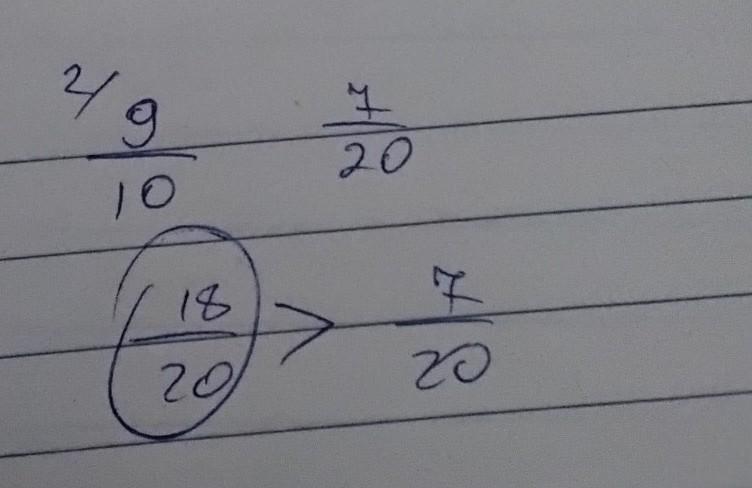 2/ 9/10 7/20
18/20 > 7/20